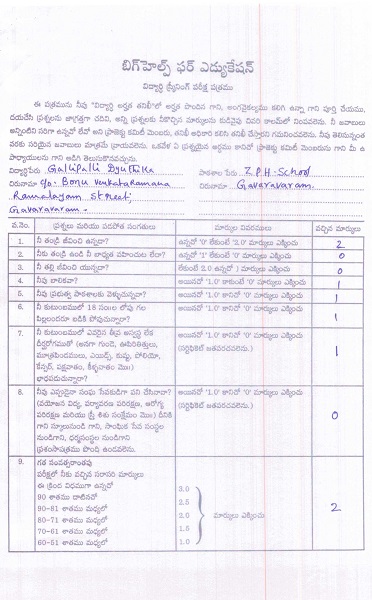 బిగ్‌హెల్ప్ ఫర్ ఎడ్యుకేషన్
విద్యార్థి స్క్రీనింగ్ పరీక్ష పత్రము
ఈ పత్రమును నీవు "విద్యార్థి అర్హత తనిఖీ"లో అర్హత పొందిన గాని, అంగవైకల్యము కలిగి ఉన్నా గాని పూర్తి చేయుము,
దయచేసి ప్రశ్నలను జాగ్రత్తగా చదివి, అన్ని ప్రశ్నలకు వీకొచ్చిన మార్కులను కుడివైపు చివరి కాలమ్‌లో నింపవలెను. నీ జవాబులు
అన్నింటిని సరిగా ఉన్నవో లేవో అని ప్రాజెక్టు కమిటీ మెంబరు, తనిఖీ అధికారి కలిసి తనిఖీ చేస్తారని గమనించవలెను. నీవు తెలిసినంత
వరకు సరియైన జవాబులు మాత్రమే వ్రాయవలెను. ఒకవేళ ఏ ప్రశ్నయైన అర్థము కానిచో ప్రాజెక్టు కమిటీ మెంబరును గాని మీ ఉ
పాధ్యాయులను గాని అడిగి తెలుసుకొనవచ్చును.
విద్యార్థిపేరు Gallipalli Dyuthika పాఠశాల పేరు : Z.P.H-School
చిరునామా c/o. Bonu Venkataramana చిరునామా : Gavaravaram.
Ramalayam Street,
Gavaravaram.
వ.నెం. ప్రశ్నలు మరియు పదపోత సంగతులు మార్కుల వివరములు వచ్చిన మార్కులు
1. నీ తండ్రి జీవించి ఉన్నడా? ఉన్నచో '0' లేకుంటే '2.0' మార్కులు ఎక్కించు 2
2. నీకు తండ్రి ఉండి నీ బాధ్యత వహించుట లేదా? ఉన్నచో '1' లేకుంటే '0' మార్కులు ఎక్కించు 0
3. నీ తల్లి జీవించి యున్నదా? లేకుంటే 2.0 ఉన్నచో 0 మార్కులు ఎక్కించు 0
4. నీవు బాలికవా? అయినచో '1.0' కాకుంటే '0' మార్కులు ఎక్కించు 1
5. నీవు ప్రభుత్వ పాఠశాలకు వెళ్ళుచున్నావా? అయినచో '1.0' కానిచో '0' మార్కులు ఎక్కించు 1
6. నీ కుటుంబములో 18 సంలల లోపు గల అయినచో '1.0' కానిచో '0' మార్కులు ఎక్కించు 1
పిల్లలందరూ బడికి పోవుచున్నారా?
7. నీ కుటుంబములో ఎవరైన తీవ్ర అస్వస్థ లేక అయినచో '1.0' కానిచో '0' మార్కులు ఎక్కించు 1
దీర్ఘరోగముతో (అనగా గుండె, ఊపిరితిత్తులు, (సర్టిఫికెట్ జతపరచవలెను.)
మూత్రపిండములు, ఎయిడ్స్, కుష్ఠు, పోలియో,
కేన్సర్, పక్షవాతం, కీళ్ళవాతం మొః)
బాధపడుచున్నారా?
8. నీవు ఎప్పుడైనా సంఘ సేవకుడిగా పని చేసినావా? అయినచో '1.0' కానిచో '0' మార్కులు ఎక్కించు 0
(వయోజన విద్య, పర్యావరణ పరిరక్షణ, ఆరోగ్య (సర్టిఫికెట్ జతపరచవలెను.)
పరిరక్షణ మరియు స్త్రీ శిశు సంక్షేమం మొః) దీనికి
గాని స్కూలునుండి గాని, సాంఘిక సేవ సంస్థల
నుండిగాని, ధర్మసంస్థల నుండిగాని
ప్రశంసాపత్రము పొంది ఉండవలెను.
9. గత సంవత్సరాంతపు
పరీక్షలో నీకు వచ్చిన సరాసరి మార్కులు
ఈ క్రింద విధముగా ఉన్నచో
90 శాతము దాటినచో 3.0
90-81 శాతము మధ్యలో 2.5
80-71 శాతము మధ్యలో 2.0 మార్కులు ఎక్కించు 2
70-61 శాతము మధ్యలో 1.5
60-51 శాతము మధ్యలో 1.0